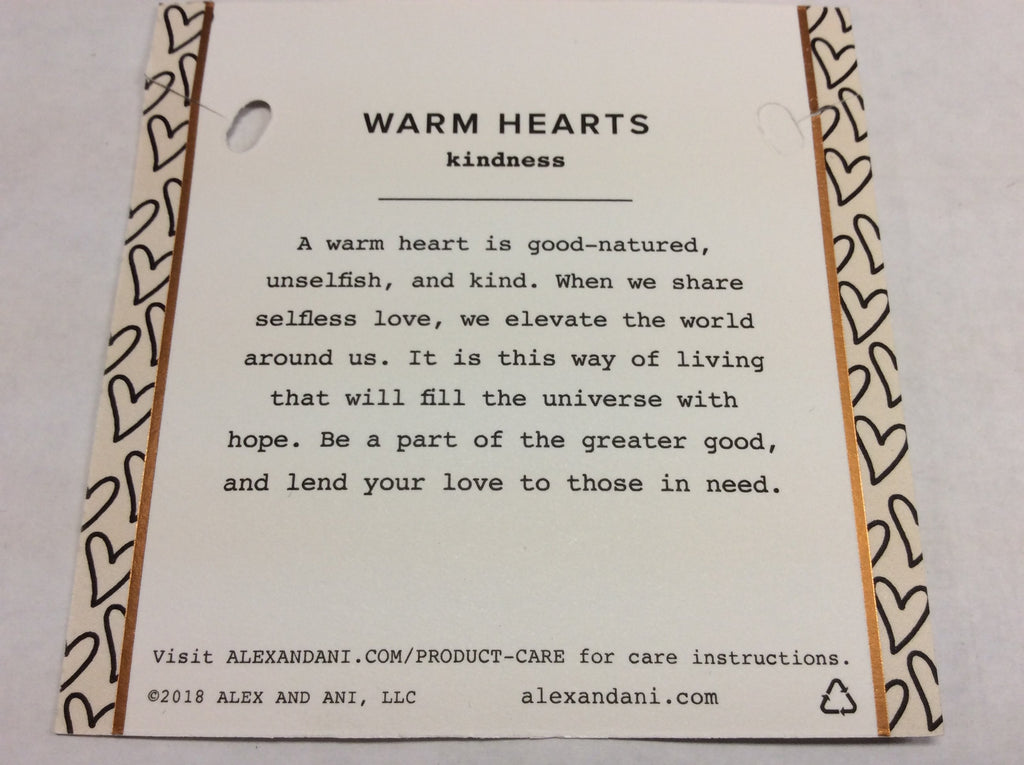 WARM HEARTS
kindness
A warm heart is good-natured,
unselfish, and kind. When we share
selfless love, we elevate the world
around us. It is this way of living
that will fill the universe with
hope. Be a part of the greater good,
and lend your love to those in need.
Visit ALEXANDANI.COM/PRODUCT-CARE for care instructions.
©2018 ALEX AND ANI, LLC alexandani.com